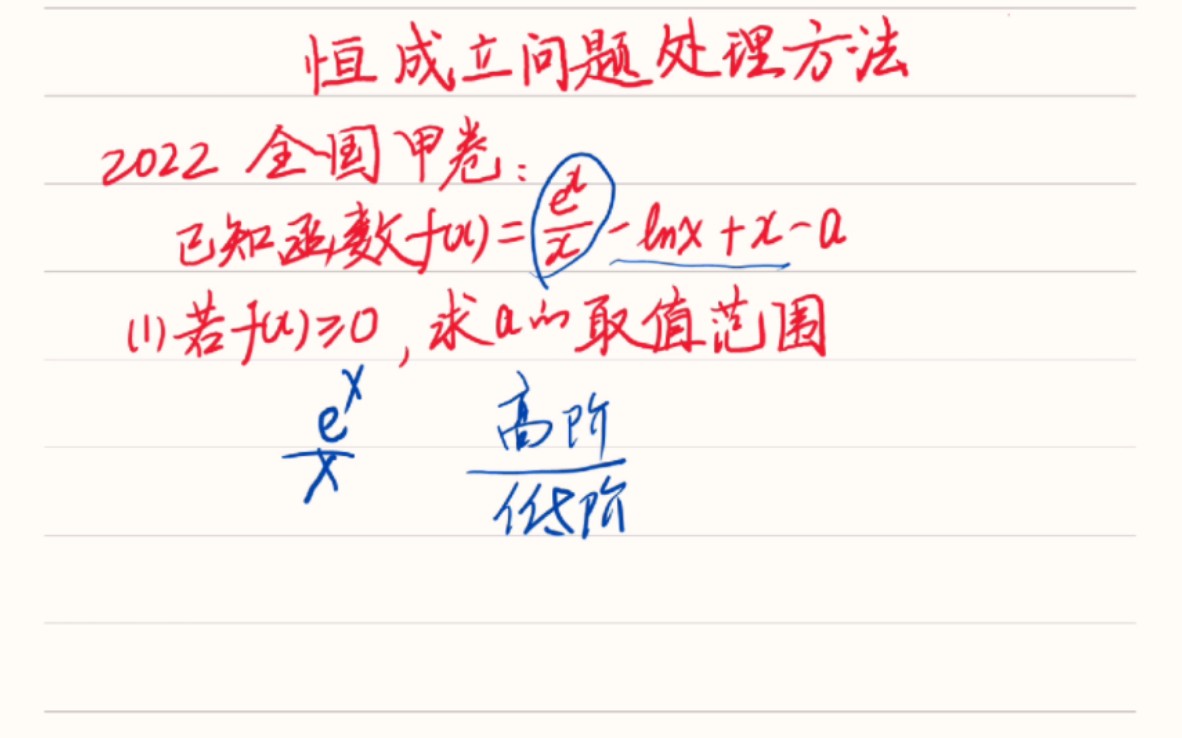 恒成立问题处理方法
2022 全国甲卷:
已知函数f(x)=e^x/x-lnx+x-a
(1)若f(x)≥0,求a的取值范围
e^x/x 高阶/低阶